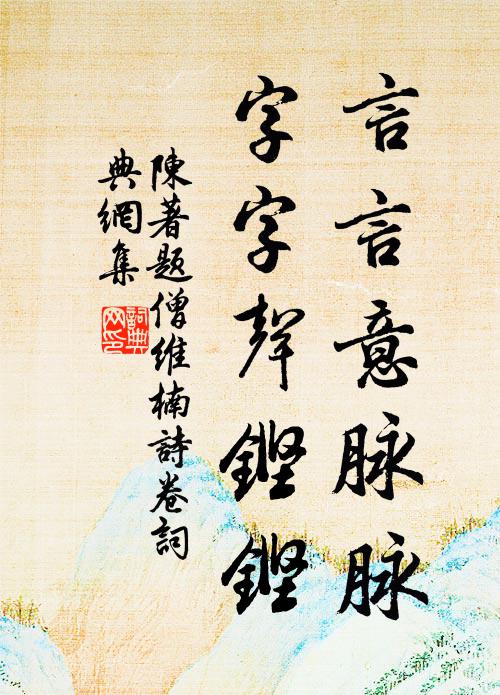 言言意脉脉
字字聲鏗鏗
陳著題僧維楠詩卷詞
典網集
詞典
网印